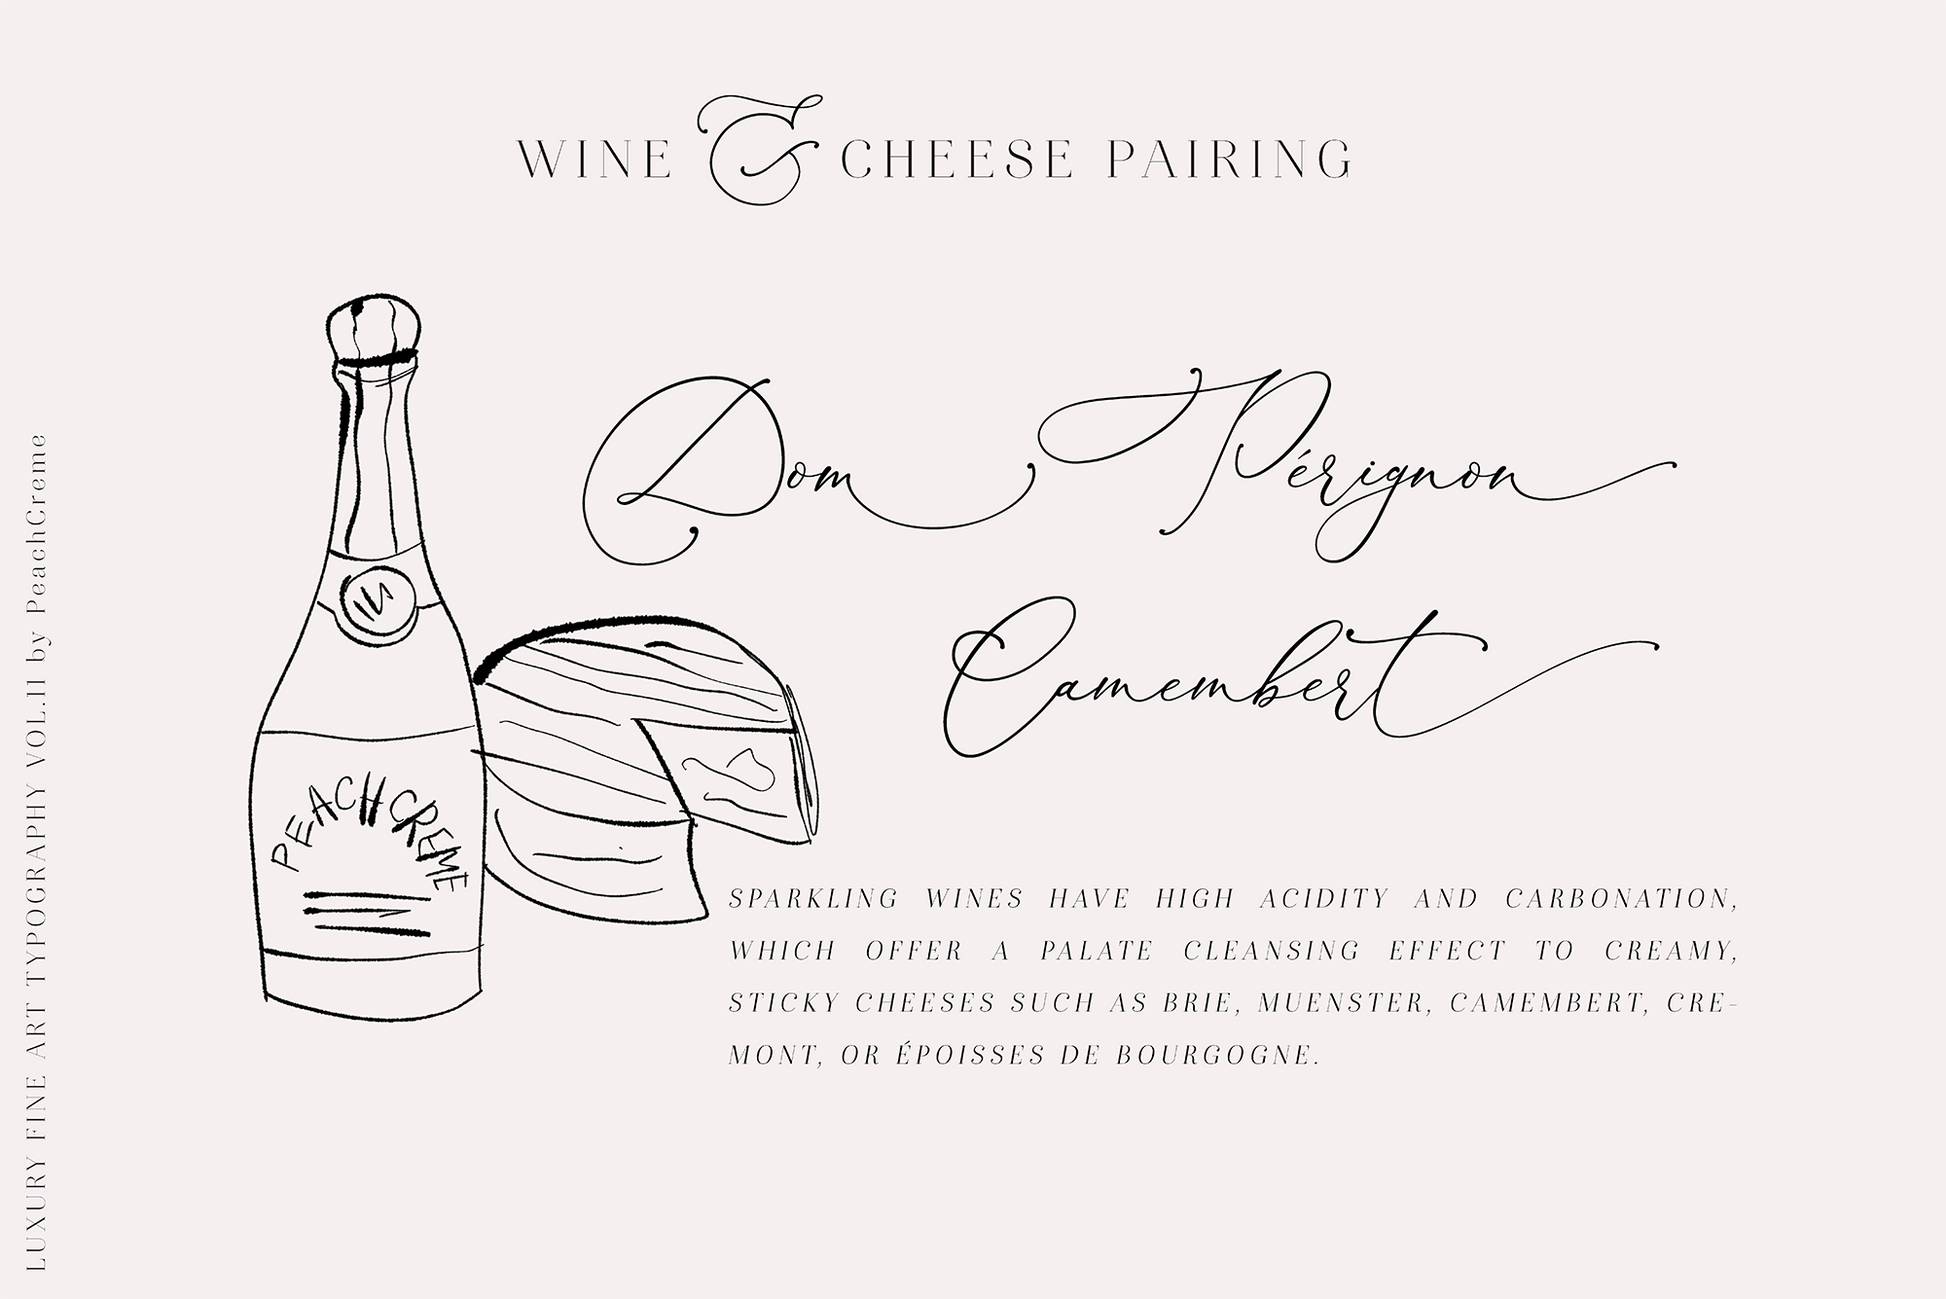 WINE & CHEESE PAIRING
Dom Pérignon
Camembert
PEACHCREME
SPARKLING WINES HAVE HIGH ACIDITY AND CARBONATION,
WHICH OFFER A PALATE CLEANSING EFFECT TO CREAMY,
STICKY CHEESES SUCH AS BRIE, MUENSTER, CAMEMBERT, CRE-
MONT, OR ÉPOISSES DE BOURGOGNE.
LUXURY FINE ART TYPOGRAPHY VOL.11 by PeachCreme